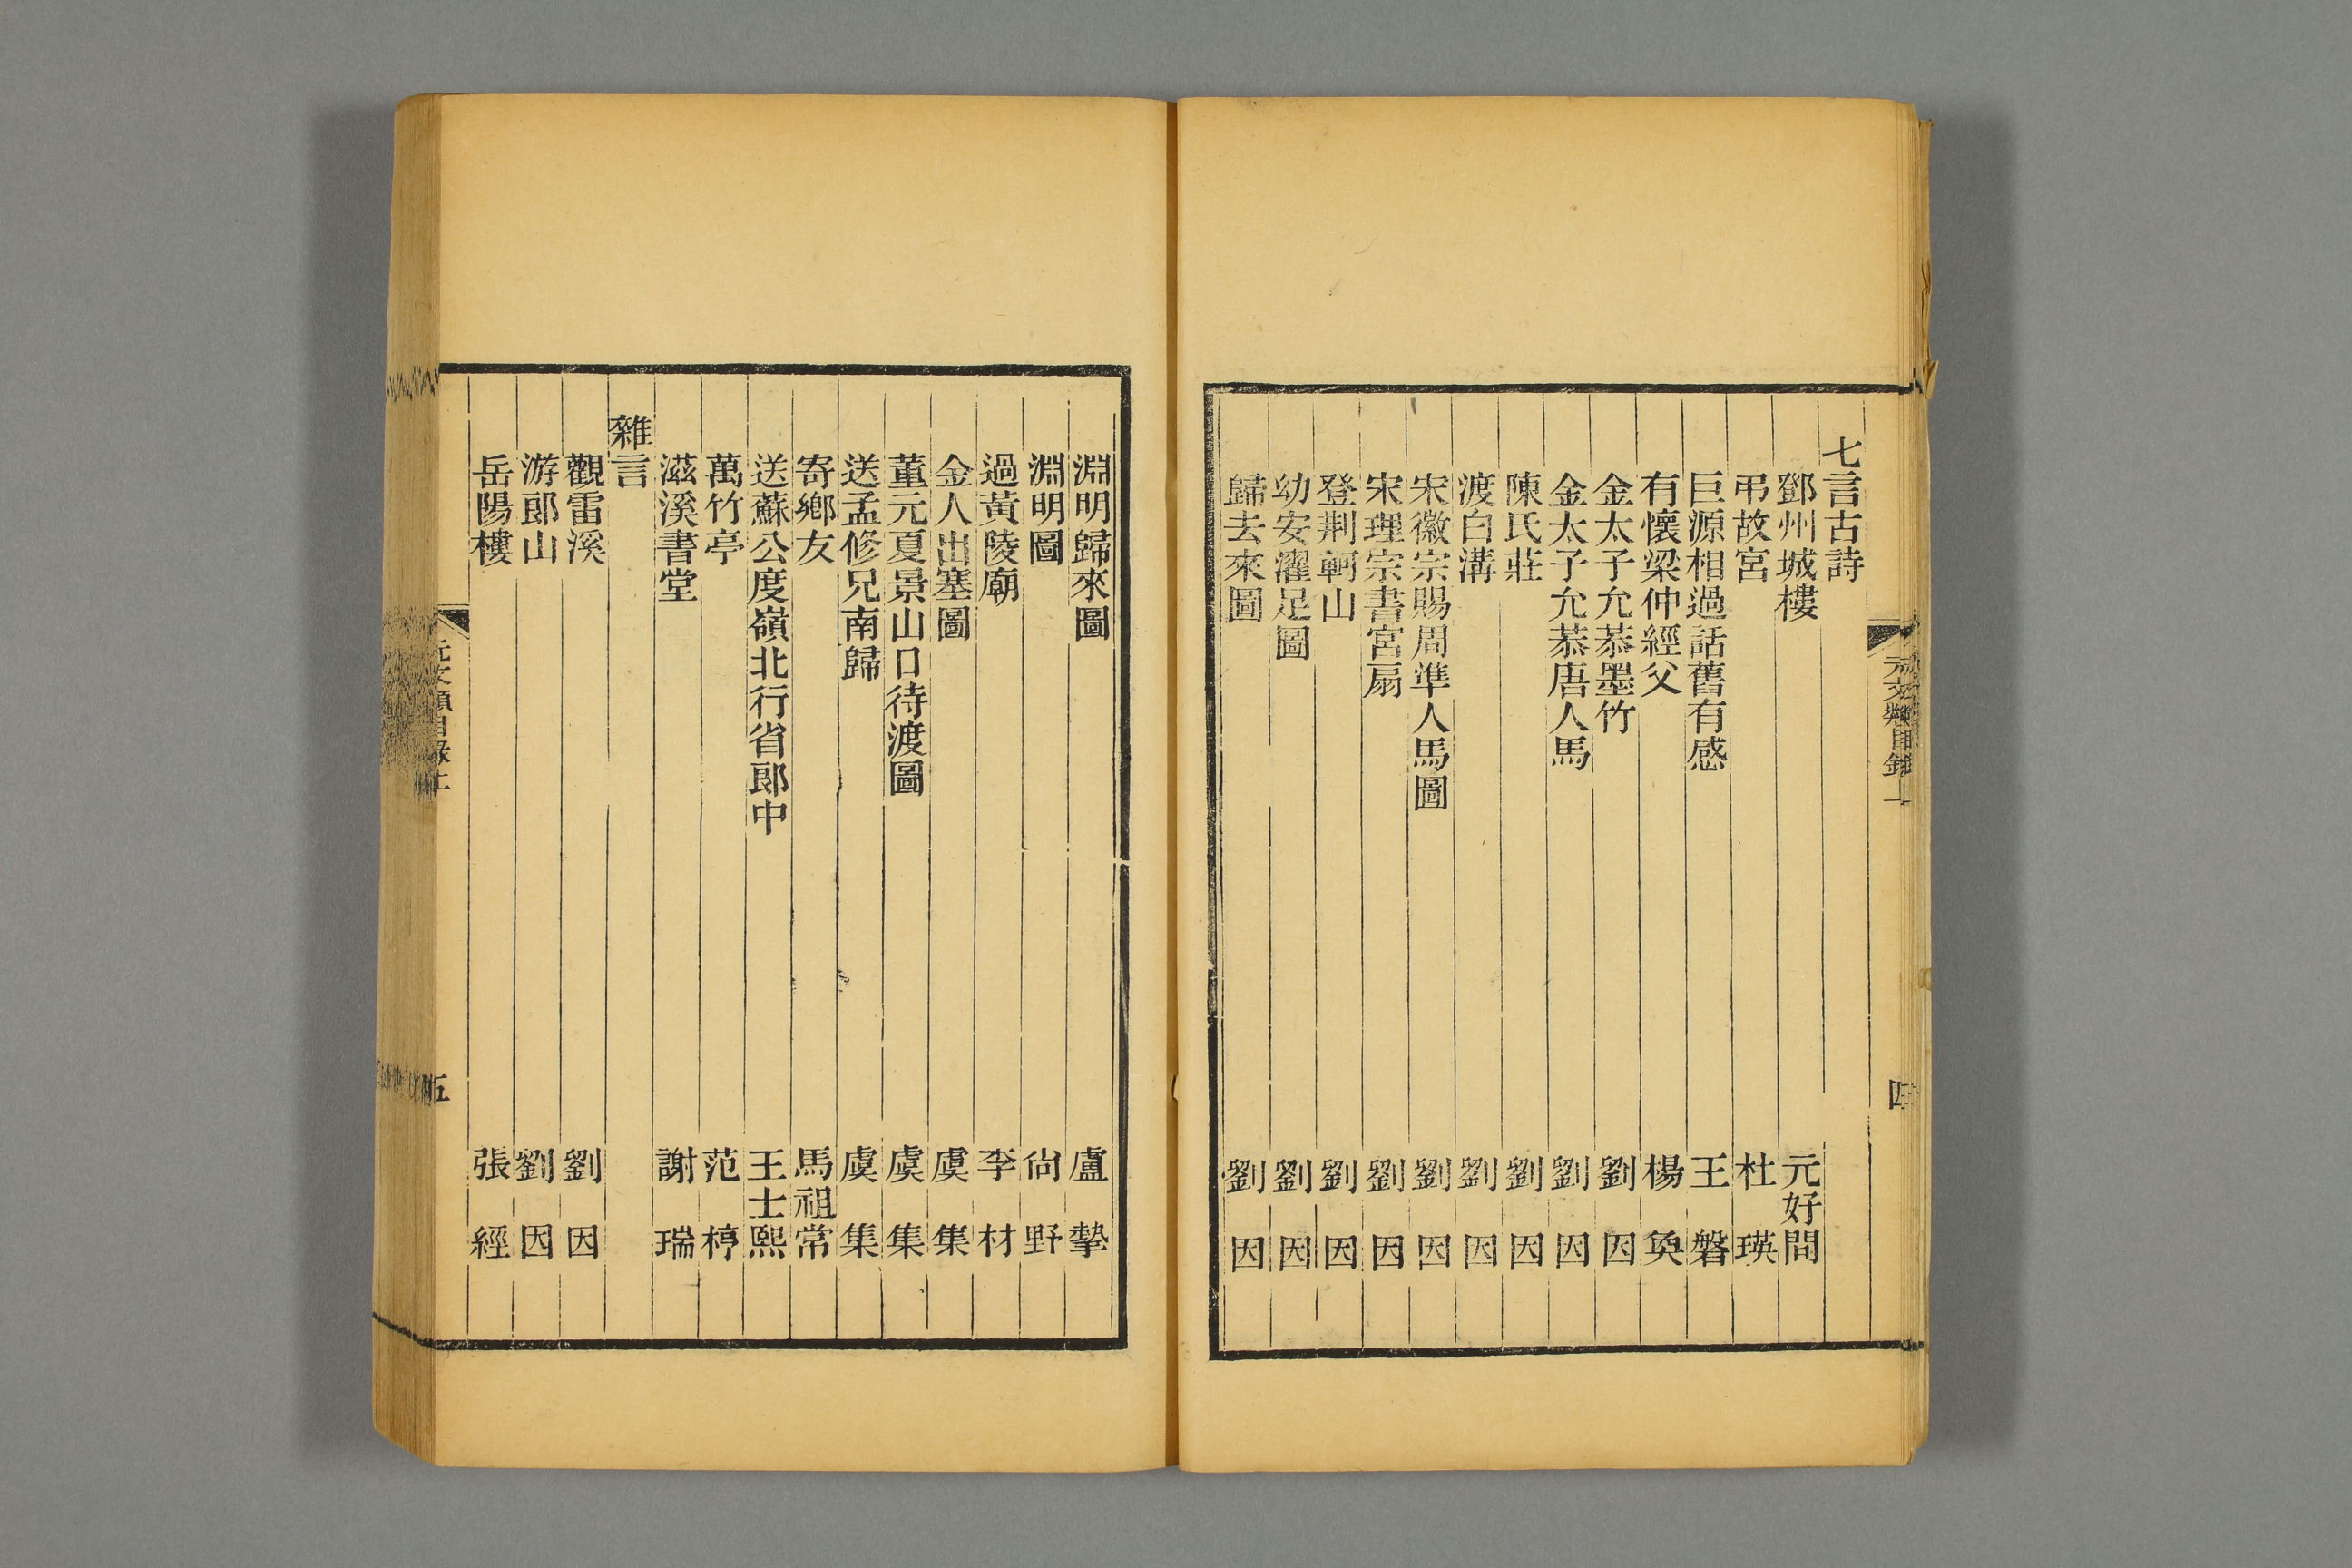 七言古詩
鄧州城樓 元好問
弔故宮 杜瑛
巨源相過話舊有感 王磐
有懷梁仲經父 楊奐
金太子允恭墨竹 劉因
金太子允恭唐人馬 劉因
陳氏莊 劉因
渡白溝 劉因
宋徽宗賜周準人馬圖 劉因
宋理宗書宮扇 劉因
登荆軻山 劉因
幼安濯足圖 劉因
歸去來圖 劉因
元文類目錄上 四
淵明歸來圖 盧摯
淵明圖 尙野
過黃陵廟 李材
金人出塞圖 虞集
董元夏景山口待渡圖 虞集
送孟修兄南歸 虞集
寄鄉友 馬祖常
送蘇公度嶺北行省郎中 王士熙
萬竹亭 范梈
滋溪書堂 謝瑞
雜言
觀雷溪 劉因
游郎山 劉因
岳陽樓 張經
元文類目錄上 五